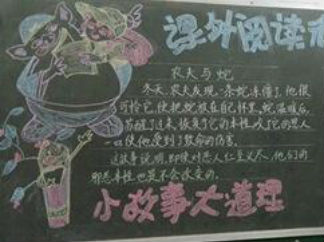 课外阅读
农夫与蛇
冬天,农夫发现一条蛇冻僵了,他很
可怜它,便把蛇放在自己怀里。蛇温暖后,
苏醒了过来,恢复了它的本性,咬了它的恩人
一口,使他受到了致命的伤害。
这故事说明,即使对恶人仁至义尽,他们的
邪恶本性也是不会改变的。
小故事大道理